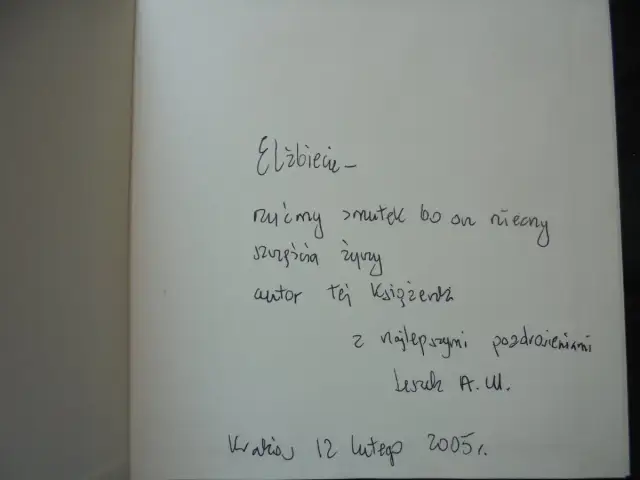 Elżbiecie –
smutek bo on
szczęścia życzy
autor tej książeczki
z najlepszymi pozdrowieniami
Leszek A. M.
Kraków 12 lutego 2005 r.